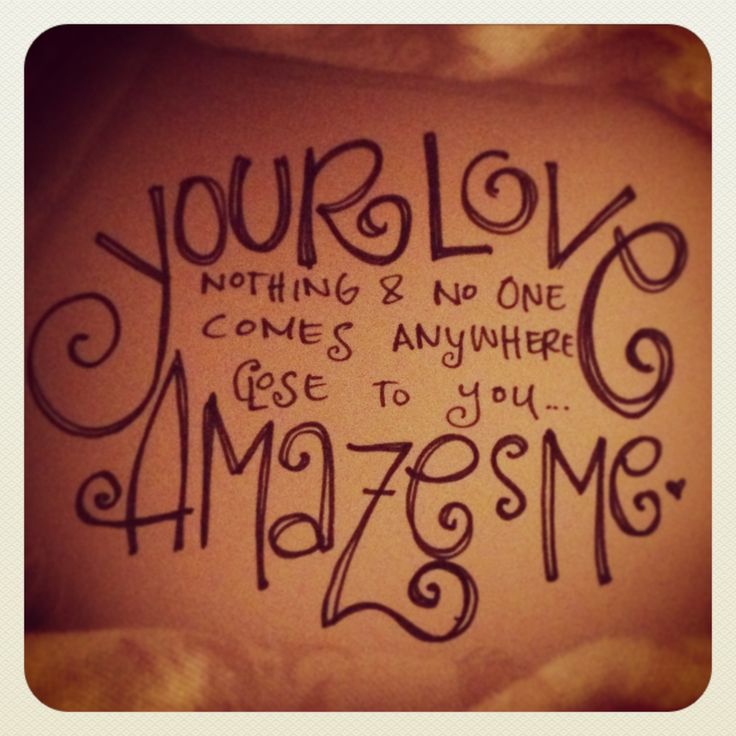 YOUR LOVE
NOTHING & NO ONE
COMES ANYWHERE
CLOSE TO YOU...
AMAZES ME.